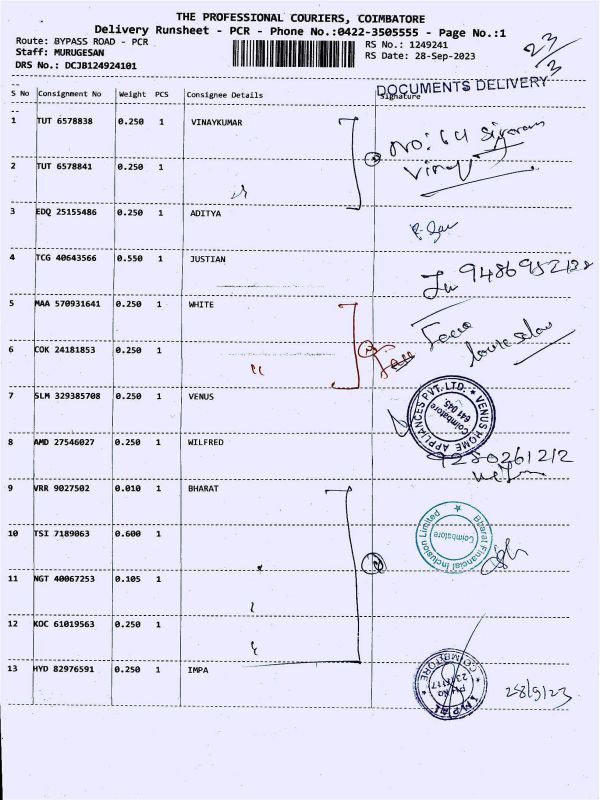 THE PROFESSIONAL COURIERS, COIMBATORE
Delivery Runsheet - PCR - Phone No.:0422-3505555 - Page No.:1
Route: BYPASS ROAD - PCR
RS No.: 1249241
Staff: MURUGESAN
RS Date: 28-Sep-2023
DRS No.: DCJB124924101
23/3
DOCUMENTS DELIVERY
S No Consignment No Weight PCS Consignee Details Signature
1 TUT 6578838 0.250 1 VINAYKUMAR
No: 64
Vinay
2 TUT 6578841 0.250 1
3 EDQ 25155486 0.250 1 ADITYA
4 TCG 40643566 0.550 1 JUSTIAN
5 MAA 570931641 0.250 1 WHITE
6 COK 24181853 0.250 1
7 SLM 329385708 0.250 1 VENUS
VENUS HOME APPLIANCES PVT. LTD.
Coimbatore
641 045.
8 AMD 27546027 0.250 1 WILFRED
9280261212
9 VRR 9027502 0.010 1 BHARAT
10 TSI 7189063 0.600 1
Bharat Financial Inclusion Limited
Coimbatore
11 NGT 40067253 0.105 1
12 KOC 61019563 0.250 1
13 HYD 82976591 0.250 1 IMPA
COIMBATORE
28/9/23